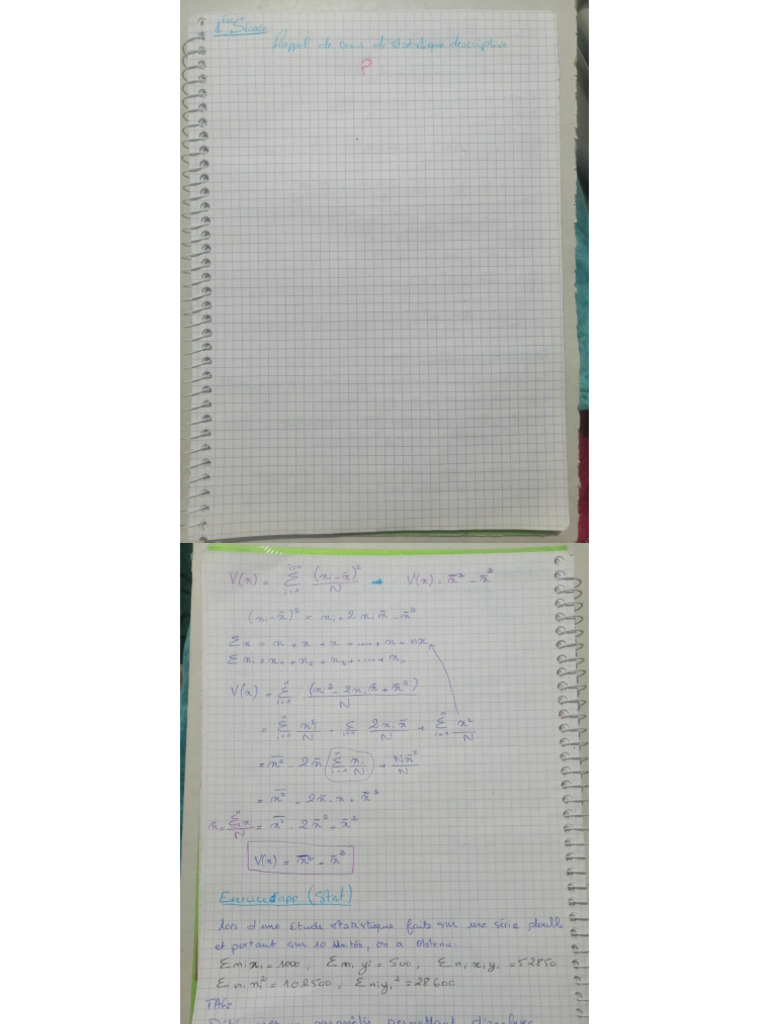 1ère Séance
Rappel de cours de statistique descriptive
?
V(x) = Σ_{i=1}^{n} (xi - x̄)² / N → V(x) = x̄² - x̄²
(xi - x̄)² = xi + 2xi x̄ - x̄²
Σ x = x + x + x + .... + x = nx
Σ xi = x1 + x2 + x3 + .... + xn
V(x) = Σ_{i=1}^{n} (xi² - 2xi x̄ + x̄²) / N
= Σ_{i=1}^{n} xi² / N - Σ_{i=1} 2xi x̄ / N + Σ_{i=1}^{n} x² / N
= x̄² - 2x̄ Σ_{i=1}^{n} xi / N + N x̄² / N
= x̄² - 2x̄ · x + x̄²
x̄ = Σ x / N = x̄² - 2x̄² + x̄²
V(x) = x̄² - x̄²
Exercice d'app (Stat)
lors d'une Etude statistique faite sur une série double
et portant sur 10 Unités, on a obtenu.
Σ ni xi = 1000, Σ ni yi = 500, Σ ni xi yi = 52850
Σ ni xi² = 102500, Σ ni yi² = 28600
TAG: